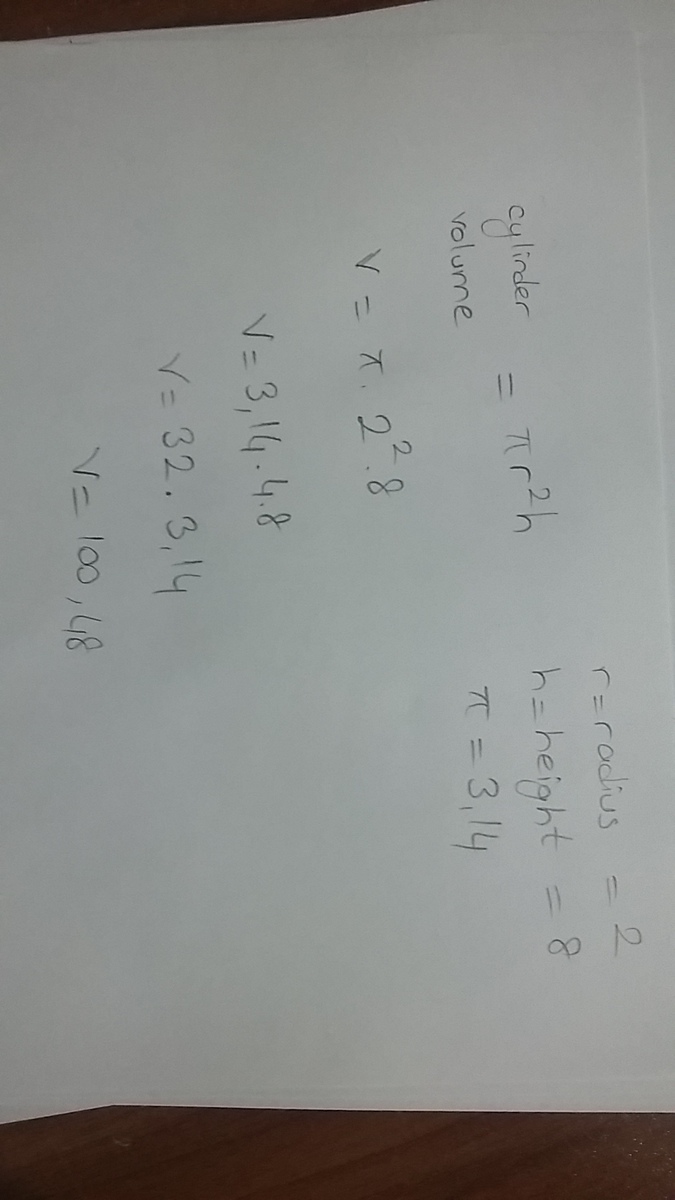 cylinder volume = πr²h
r = radius = 2
h = height = 8
π = 3,14
V = π . 2² . 8
V = 3,14 . 4 . 8
V = 32 . 3,14
V = 100,48